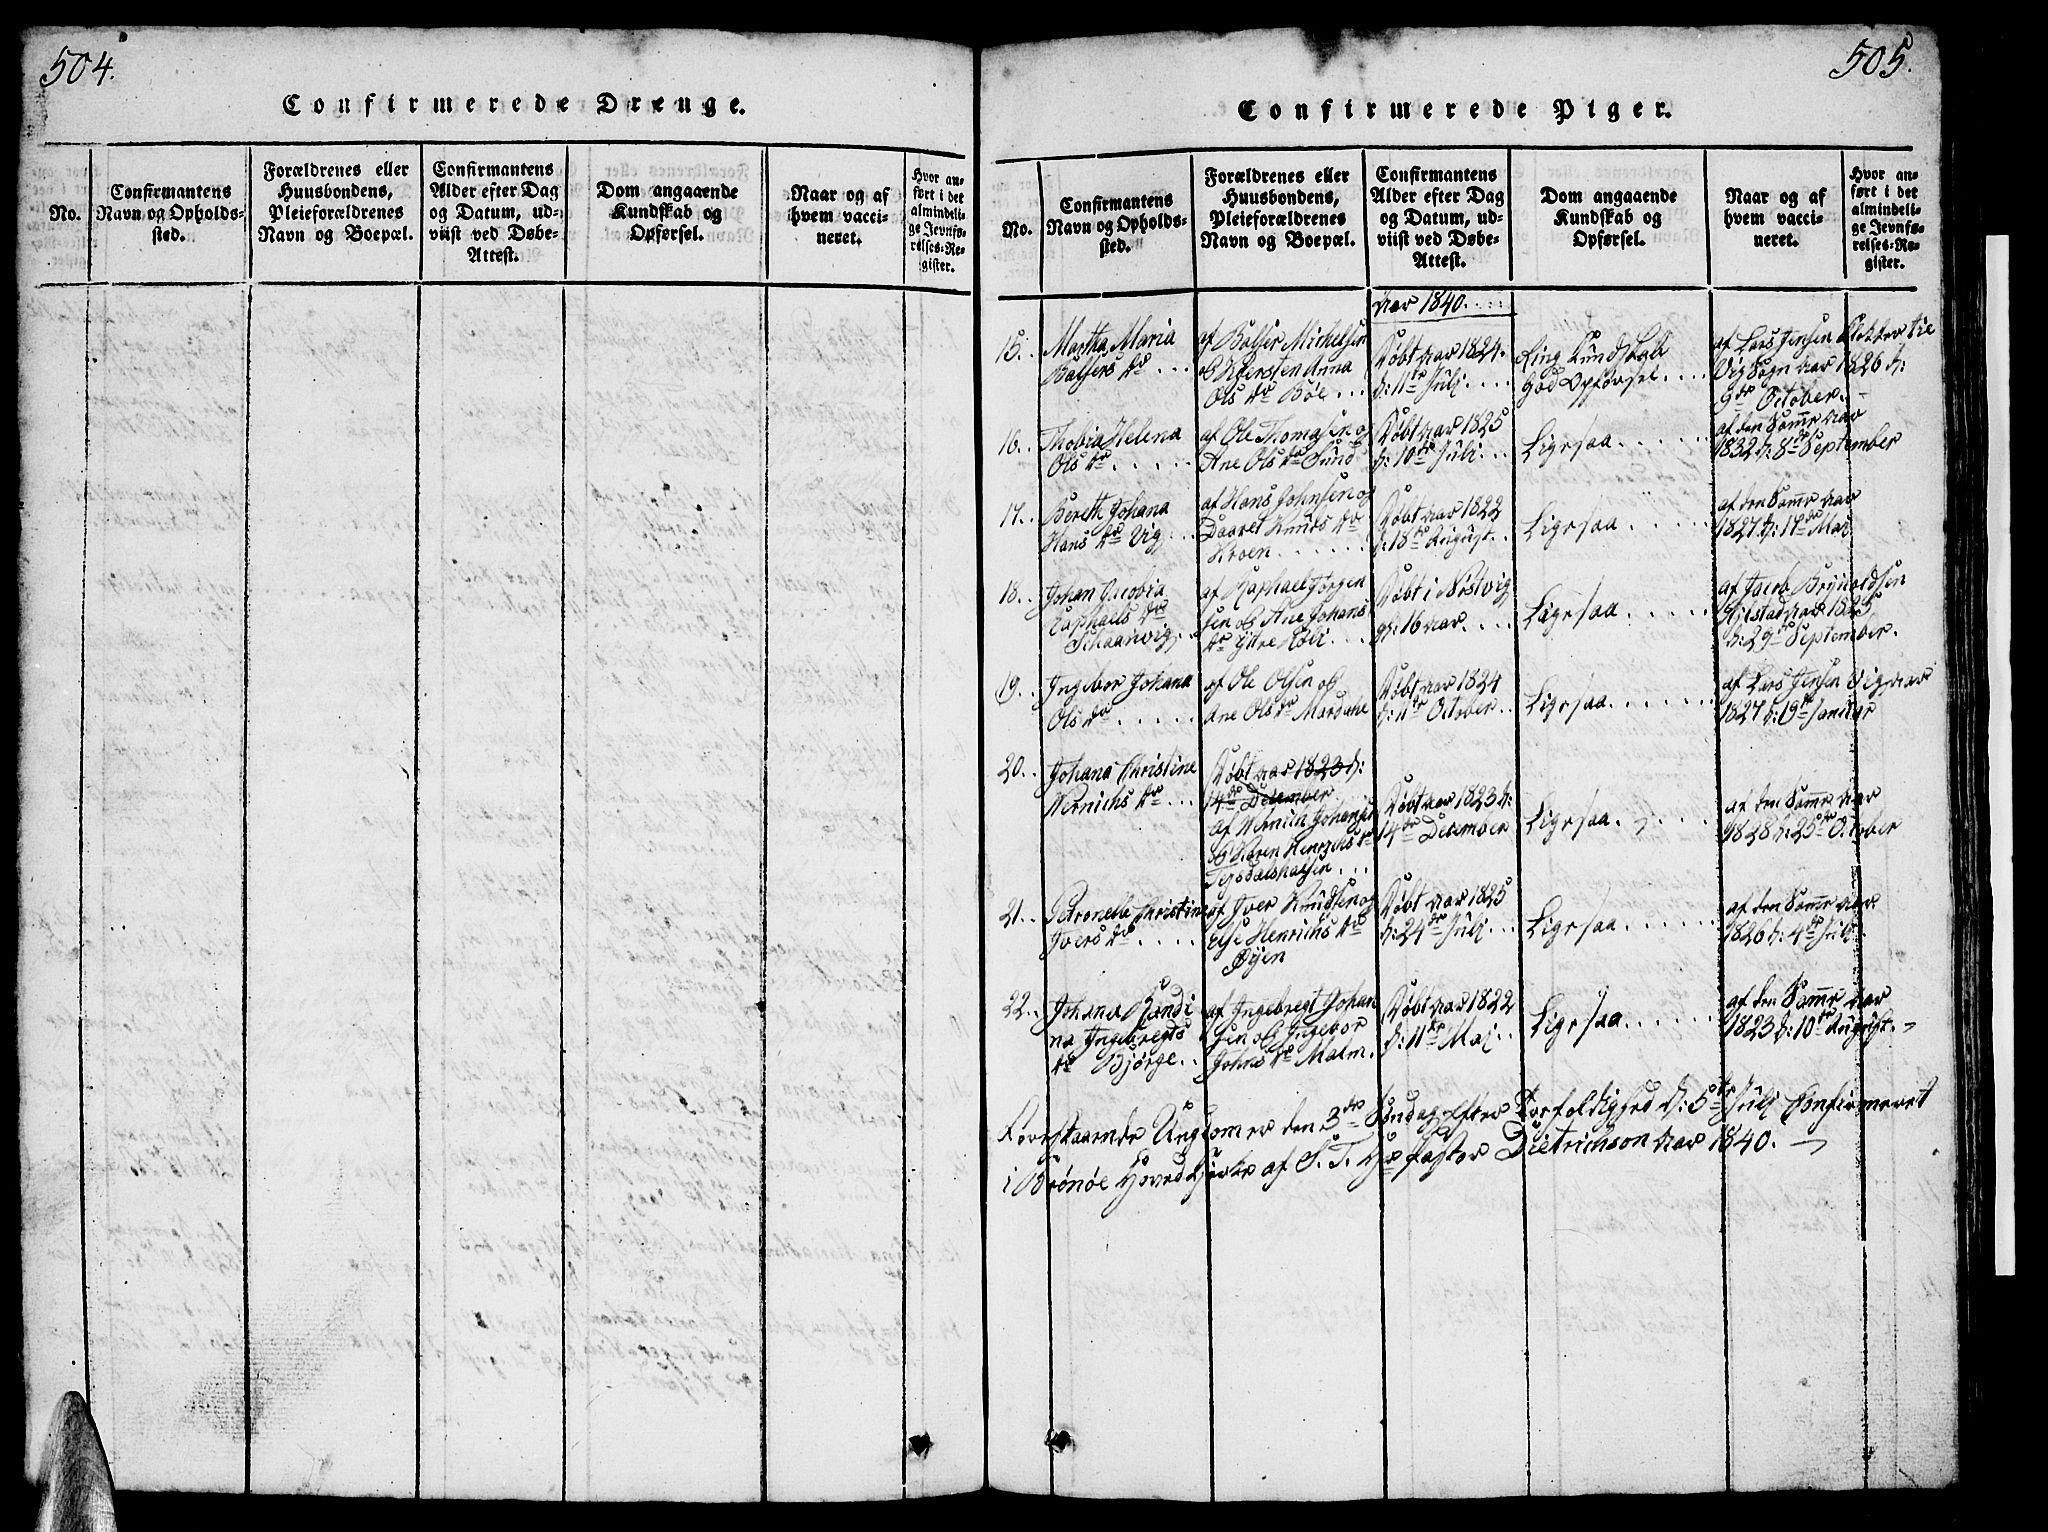 504.
Confirmerede Drenge.
No.
Confirmantens
Navn og Opholds-
sted.
Forældrenes eller
Huusbondens,
Pleieforældrenes
Navn og Boepæl.
Confirmantens
Alder efter Dag
og Datum, ud-
viist ved Døbe-
Attest.
Dom angaaende
Kundskab og
Opførsel.
Naar og af
hvem vacci-
neret.
Hvor an-
ført i det
almindeli-
ge Jevnfø-
relses-Re-
gister.
505.
Confirmerede Piger.
No.
Confirmantens
Navn og Opholds-
sted.
Forældrenes eller
Huusbondens,
Pleieforældrenes
Navn og Boepæl.
Confirmantens
Alder efter Dag
og Datum, ud-
viist ved Døbe-
Attest.
Dom angaaende
Kundskab og
Opførsel.
Naar og af
hvem vacci-
neret.
Hvor an-
ført i det
almindeli-
ge Jevnfø-
relses-Re-
gister.
Aar 1840.
15.
Martha Maria
Balsers dr
af Balser Michelsen
og Kiersten Anna
Ols dr Bøe
Døbt Aar 1824.
d: 11te Julj
Ring Kundskab
God Opførsel
af Lars Jensen Klokker til
Vig Sogn Aar 1826 d:
9de October.
16.
Thobia Helena
Ols dr
af Ole Thomasen og
Ane Ols dr Sund
Døbt Aar 1825
d: 10de Julj
Ligesaa
af den Samme Aar
1832 d: 8de September
17.
Bereth Johana
Hans dr Vig
af Hans Johnsen og
Daaret Knuds dr
Kroen
Døbt Aar 1822
d: 18de August
Ligesaa
af den Samme Aar
1827 d: 17de Maj
18.
Johan Jacobia
Raphaels dr
Schaarvig
af Raphael Jørgen
sen og Ane Johans
dr Ydre
Døbt i
16 Aar
Ligesaa
af Jacob Brynoldsen
Aar 1825
d: 29de September.
19.
Ingebor Johana
Ols dr
af Ole Olsen og
Ane Ols dr Mardahl
Døbt Aar 1824
d: 11te October
Ligesaa
af Lars Jensen Vig Aar
1827 d: 19de Januar
20.
Johana Christine
Wernichs dr
Døbt Aar 1823 d:
14de December
af Wernich Johansen
og Karen Henrichs dr
Døbt Aar 1823 d:
14de December
Ligesaa
af den Samme Aar
1828 d: 25de October
21.
Petronelle Christine
Ivers dr
af Iver Knudsen og
Else Henrichs dr
Øyen
Døbt Aar 1825
d: 24de Julj
Ligesaa
af den Samme Aar
1826 d: 4de Julj
22.
Johana Randi
na Ingebregts
dr Bjørge
af Ingebregt Johan
sen og Ingebor
Johns dr Malm.
Døbt Aar 1822
d: 11te Maj
Ligesaa
af den Samme Aar
1823 d: 10de August.
Forestaaende Ungdom er den 3de Søndag efter Trefoldighed d: 5te Julj Confirmeret
i Brønøe Hovedkirke af S. T. Hr Pastor Dietrichson Aar 1840.